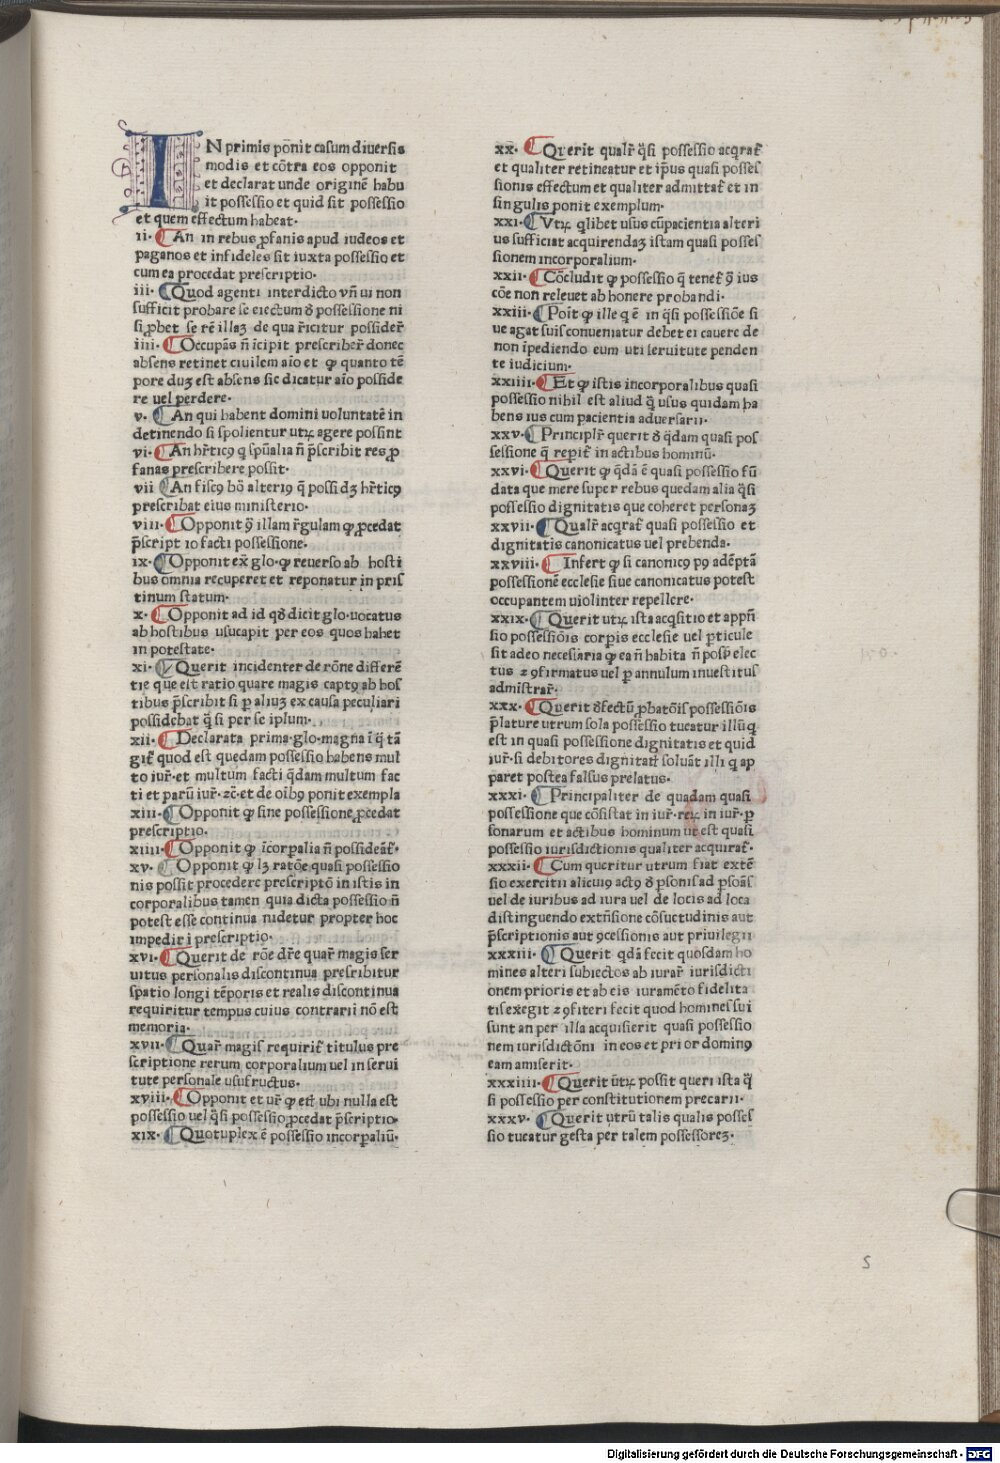 IN primis põnit casum diuersis
modis et cõtra eos opponit
et declarat unde originẽ habu
it possessio et quid sit possessio
et quem effectum habeat·
ii· An in rebus ꝓfanis apud iudeos et
paganos et infideles sit iuxta possessio et
cum ea procedat prescriptio·
iii· Quod agenti interdicto vñ ui non
sufficit probare se eiectum ꝺ possessione ni
si ꝓbet se rẽ illaꝫ de qua r̃icitur possider̃
iiii· Occupãs ñ ĩcipit prescriber̃ donec
absens retinet ciuilem aĩo et ꝙ quanto tẽ
pore duꝫ est absens sic dicatur aĩo posside
re uel perdere·
v· An qui habent domini uoluntatẽ in
detinendo si spolientur utꝝ agere possint
vi· An hr̃ticꝯ q̃ spũalia ñ p̃scribit res ꝓ
fanas prescribere possit·
vii An fiscꝯ bõ alteriꝯ q̃ possidꝫ hr̃ticꝯ
prescribat eius ministerio·
viii· Opponit ꝯ̃ illam r̃gulam ꝙ ꝓcedat
p̃script io facti possessione·
ix· Opponit ex̃ glo·ꝙ reuerso ab hosti
bus omnia recuperet et reponatur in pris
tinum statum·
x· Opponit ad id qꝺ dicit glo·uocatus
ab hostibus usucapit per eos quos habet
in potestate·
xi· Querit incidenter de rõne differẽ
tie que est ratio quare magis captꝯ ab hos
tibus p̃scribit si ꝑ aliuꝫ ex causa peculiari
possidebat q̃ si per se ipsum·
xii· Declarata prima·glo·magna ĩ q̃ tã
git̃ quod est quedam possessio habens mul
to iur̃·et multum facti q̃dam multum fac
ti et parũ iur̃·ꝛc̃·et de oĩbꝯ ponit exempla
xiii· Opponit ꝙ sine possessione ꝓcedat
prescriptio·
xiiii· Opponit ꝙ ĩcorꝑalia ñ possideãt̃·
xv· Opponit ꝙ lꝫ ratõe quasi possessio
nis possit procedere prescriptõ in istis in
corporalibus tamen quia dicta possessio ñ
potest esse continua uidetur propter hoc
impedir i prescriptio·
xvi· Querit de rõe dr̃e quar̃ magis ser
uitus personalis discontinua prescribitur
spatio longi tẽporis et realis discontinua
requiritur tempus cuius contrarii nõ est
memoria·
xvii· Quar̃ magis requirit̃ titulus pre
scriptione rerum corporalium uel in serui
tute personale usufructus·
xviii· Opponit et ur̃ ꝙ et̃ ubi nulla est
possessio uel q̃si possessio ꝓcedat p̃scriptio·
xix· Quotuplex ẽ possessio incorꝑaliũ·
xx· Querit qualr̃ q̃si possessio acq̃rat̃
et qualiter retineatur et ip̃us quasi posses
sionis effectum et qualiter admittat̃ et in
singulis ponit exemplum·
xxi· Vtꝝ qlibet usus cũpacientia alteri
us sufficiat acquirendaꝫ istam quasi posses
sionem incorporalium·
xxii· Cõcludit ꝙ possessio q̃ tenet̃ ꝯ̃ ius
cõe non releuet ab honere probandi·
xxiii· Poĩt ꝙ ille q̃ ẽ in q̃si possessiõe si
ue agat suis conueniatur debet ei cauere de
non ĩpediendo eum uti seruitute penden
te iudicium·
xxiiii· Et ꝙ istis incorporalibus quasi
possessio nihil est aliud q̃ usus quidam ha
bens ius cum pacientia aduersarii·
xxv· Principlr̃ querit ꝺ q̃dam quasi pos
sessione q̃ repit̃ in actibus hominũ·
xxvi· Querit ꝙ q̃dã ẽ quasi possessio fũ
data que mere super rebus quedam alia q̃si
possessio dignitatis que coheret personaꝫ
xxvii· Qualr̃ acqrat̃ quasi possessio et
dignitatis canonicatus uel prebenda·
xxviii· Infert ꝙ si canonicꝯ pꝯ adẽptã
possessionẽ ecclesie siue canonicatus potest
occupantem uiolinter repellere·
xxix· Querit utꝝ ista acq̃sitio et appñ
sio possessiõis corpis ecclesie uel ꝑticule
sit adeo necesiaria ꝙ ea ñ habita ñ posꝫ elec
tus ꝛ ꝯfirmatus uel ꝑ annulum inuestitus
admistrar̃·
xxx· Querit ꝺfectũ ꝓbatõis possessiõis
p̃lature utrum sola possessio tueatur illũ q
est in quasi possessione dignitatis et quid
iur̃·si debitores dignitat̃ soluãt illi q ap
paret postea falsus prelatus·
xxxi· Principaliter de quadam quasi
possessione que cõsistat in iur̃·reꝝ in iur̃·ꝑ
sonarum et actibus hominum ut est quasi
possessio iurisdictionis qualiter acquirat̃·
xxxii· Cum queritur utrum fiat extẽ
sio exercitii alicuiꝯ actꝯ ꝺ ꝑsonis ad ꝑsoãs
uel de iuribus ad iura uel de locis ad loca
distinguendo extñsione cõsuetudinis aut
p̃scriptionis aut ꝯcessionis aut priuilegii
xxxiii· Querit qdã fecit quosdam ho
mines alteri subiectos ab iurar̃ iurisdicti
onem prioris et ab eis iuramẽto fidelita
tis exegit ꝛ ꝯfiteri fecit quod homines sui
sunt an per illa acquisierit quasi possessio
nem iurisdictõni in eos et pri or dominꝯ
eam amiserit·
xxxiiii· Querit ũtꝝ possit queri ista q̃
si possessio per constitutionem precarii·
xxxv· Querit utrũ talis qualis posses
sio tueatur gesta per talem possessoreꝫ·
5
Digitalisierung gefördert durch die Deutsche Forschungsgemeinschaft - DFG